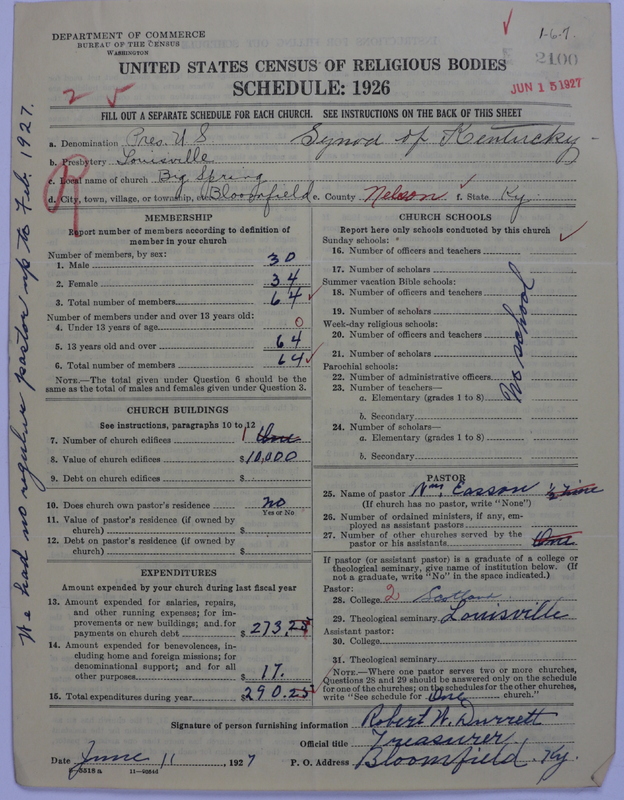 DEPARTMENT OF COMMERCE
BUREAU OF THE CENSUS
WASHINGTON
1-6-7.
2100
JUN 15 1927
UNITED STATES CENSUS OF RELIGIOUS BODIES
SCHEDULE: 1926
2
FILL OUT A SEPARATE SCHEDULE FOR EACH CHURCH. SEE INSTRUCTIONS ON THE BACK OF THIS SHEET
a. Denomination Pres. U S. Synod of Kentucky -
b. Presbytery Louisville
c. Local name of church Big Spring
d. City, town, village, or township, etc. Bloomfield e. County Nelson f. State Ky
R
We had no regular pastor up to Feb. 1927.
MEMBERSHIP
Report number of members according to definition of
member in your church
Number of members, by sex:
1. Male 30
2. Female 34
3. Total number of members 64
Number of members under and over 13 years old:
4. Under 13 years of age 0
5. 13 years old and over 64
6. Total number of members 64
NOTE.—The total given under Question 6 should be the
same as the total of males and females given under Question 3.
CHURCH BUILDINGS
See instructions, paragraphs 10 to 12
7. Number of church edifices 1 One
8. Value of church edifices $10,000
9. Debt on church edifices $
10. Does church own pastor's residence no
Yes or No
11. Value of pastor's residence (if owned by
church) $
12. Debt on pastor's residence (if owned by
church) $
EXPENDITURES
Amount expended by your church during last fiscal year
13. Amount expended for salaries, repairs,
and other running expenses; for im-
provements or new buildings; and for
payments on church debt $ 273.25
14. Amount expended for benevolences, in-
cluding home and foreign missions; for
denominational support; and for all
other purposes $ 17.
15. Total expenditures during year $ 290.25
CHURCH SCHOOLS
Report here only schools conducted by this church
Sunday schools:
16. Number of officers and teachers
17. Number of scholars
Summer vacation Bible schools:
18. Number of officers and teachers
19. Number of scholars
Week-day religious schools:
20. Number of officers and teachers
21. Number of scholars
Parochial schools:
22. Number of administrative officers
23. Number of teachers—
a. Elementary (grades 1 to 8)
b. Secondary
24. Number of scholars—
a. Elementary (grades 1 to 8)
b. Secondary
No school
PASTOR
25. Name of pastor Wm. Casson ½ time
(If church has no pastor, write "None")
26. Number of ordained ministers, if any, em-
ployed as assistant pastors
27. Number of other churches served by the
pastor or his assistants One
If pastor (or assistant pastor) is a graduate of a college or
theological seminary, give name of institution below. (If
not a graduate, write "No" in the space indicated.)
Pastor:
28. College 2 Scotland
29. Theological seminary Louisville
Assistant pastor:
30. College
31. Theological seminary
NOTE.—Where one pastor serves two or more churches,
Questions 28 and 29 should be answered only on the schedule
for one of the churches; on the schedules for the other churches,
write "See schedule for One church."
Signature of person furnishing information Robert W. Durrett
Official title Treasurer
Date June 11, 1927 P. O. Address Bloomfield. Ky.